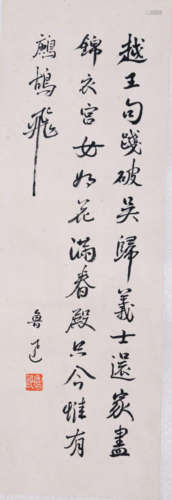 越王句踐破吳歸義士還家盡
錦衣宮女如花滿春殿只今惟有
鷓鴣飛
魯迅